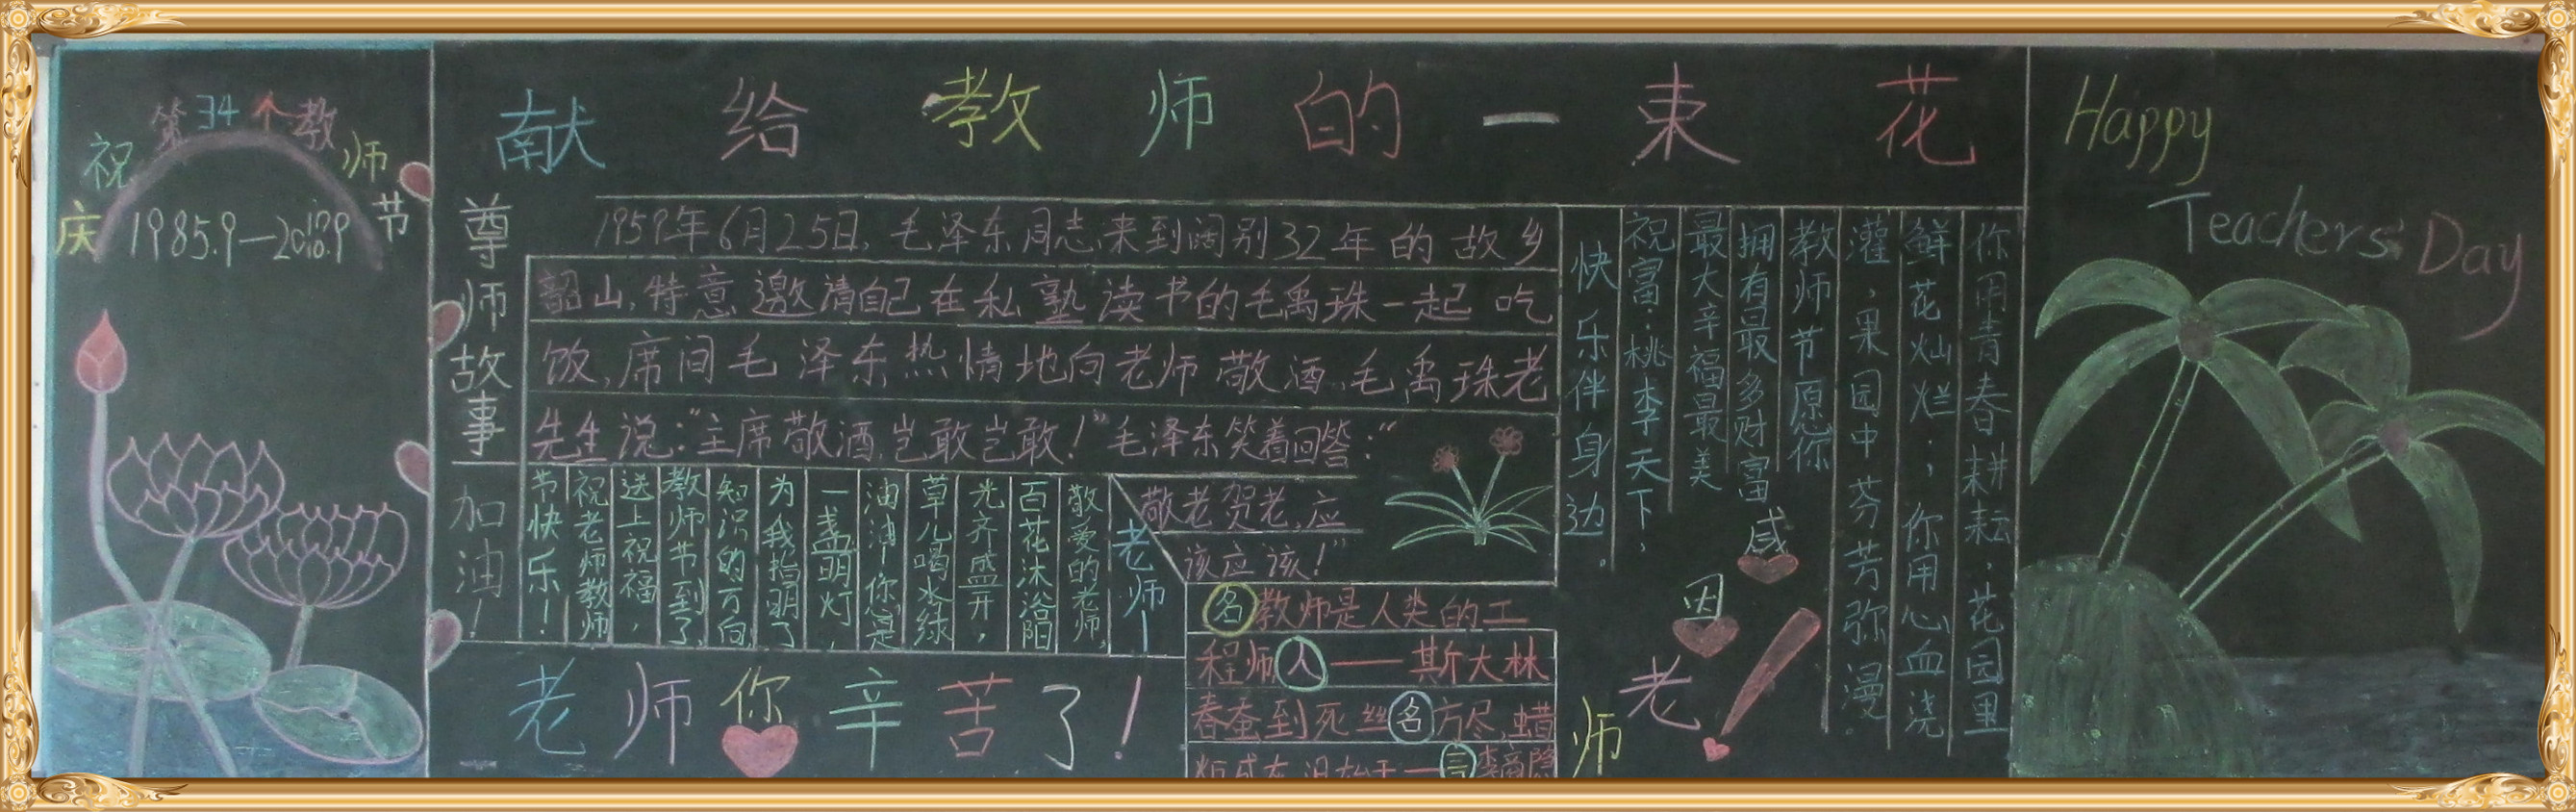 庆祝第34个教师节
1985.9—2018.9
献给教师的一束花
尊师故事
1959年6月25日，毛泽东同志来到阔别32年的故乡
韶山，特意邀请自己在私塾读书的毛禹珠一起吃
饭，席间毛泽东热情地向老师敬酒，毛禹珠老
先生说：“主席敬酒，岂敢岂敢！”毛泽东笑着回答：“
敬老贺老，应
该应该！”
加油！
老师！
敬爱的老师，
百花沐浴阳
光齐盛开，
草儿喝水绿
油油，你是
一盏明灯，
为我指明了
知识的方向，
教师节到了，
送上祝福，
祝老师教师
节快乐！
老师你辛苦了！
名教师是人类的工
程师人——斯大林
春蚕到死丝名方尽，蜡
言李商隐
你用青春耕耘，花园里
鲜花灿烂；你用心血浇
灌，果园中芬芳弥漫。
教师节愿你
拥有最多财富
最大幸福最美
祝富：桃李天下，
快乐伴身边。
感
因
老
师
Happy
Teachers Day